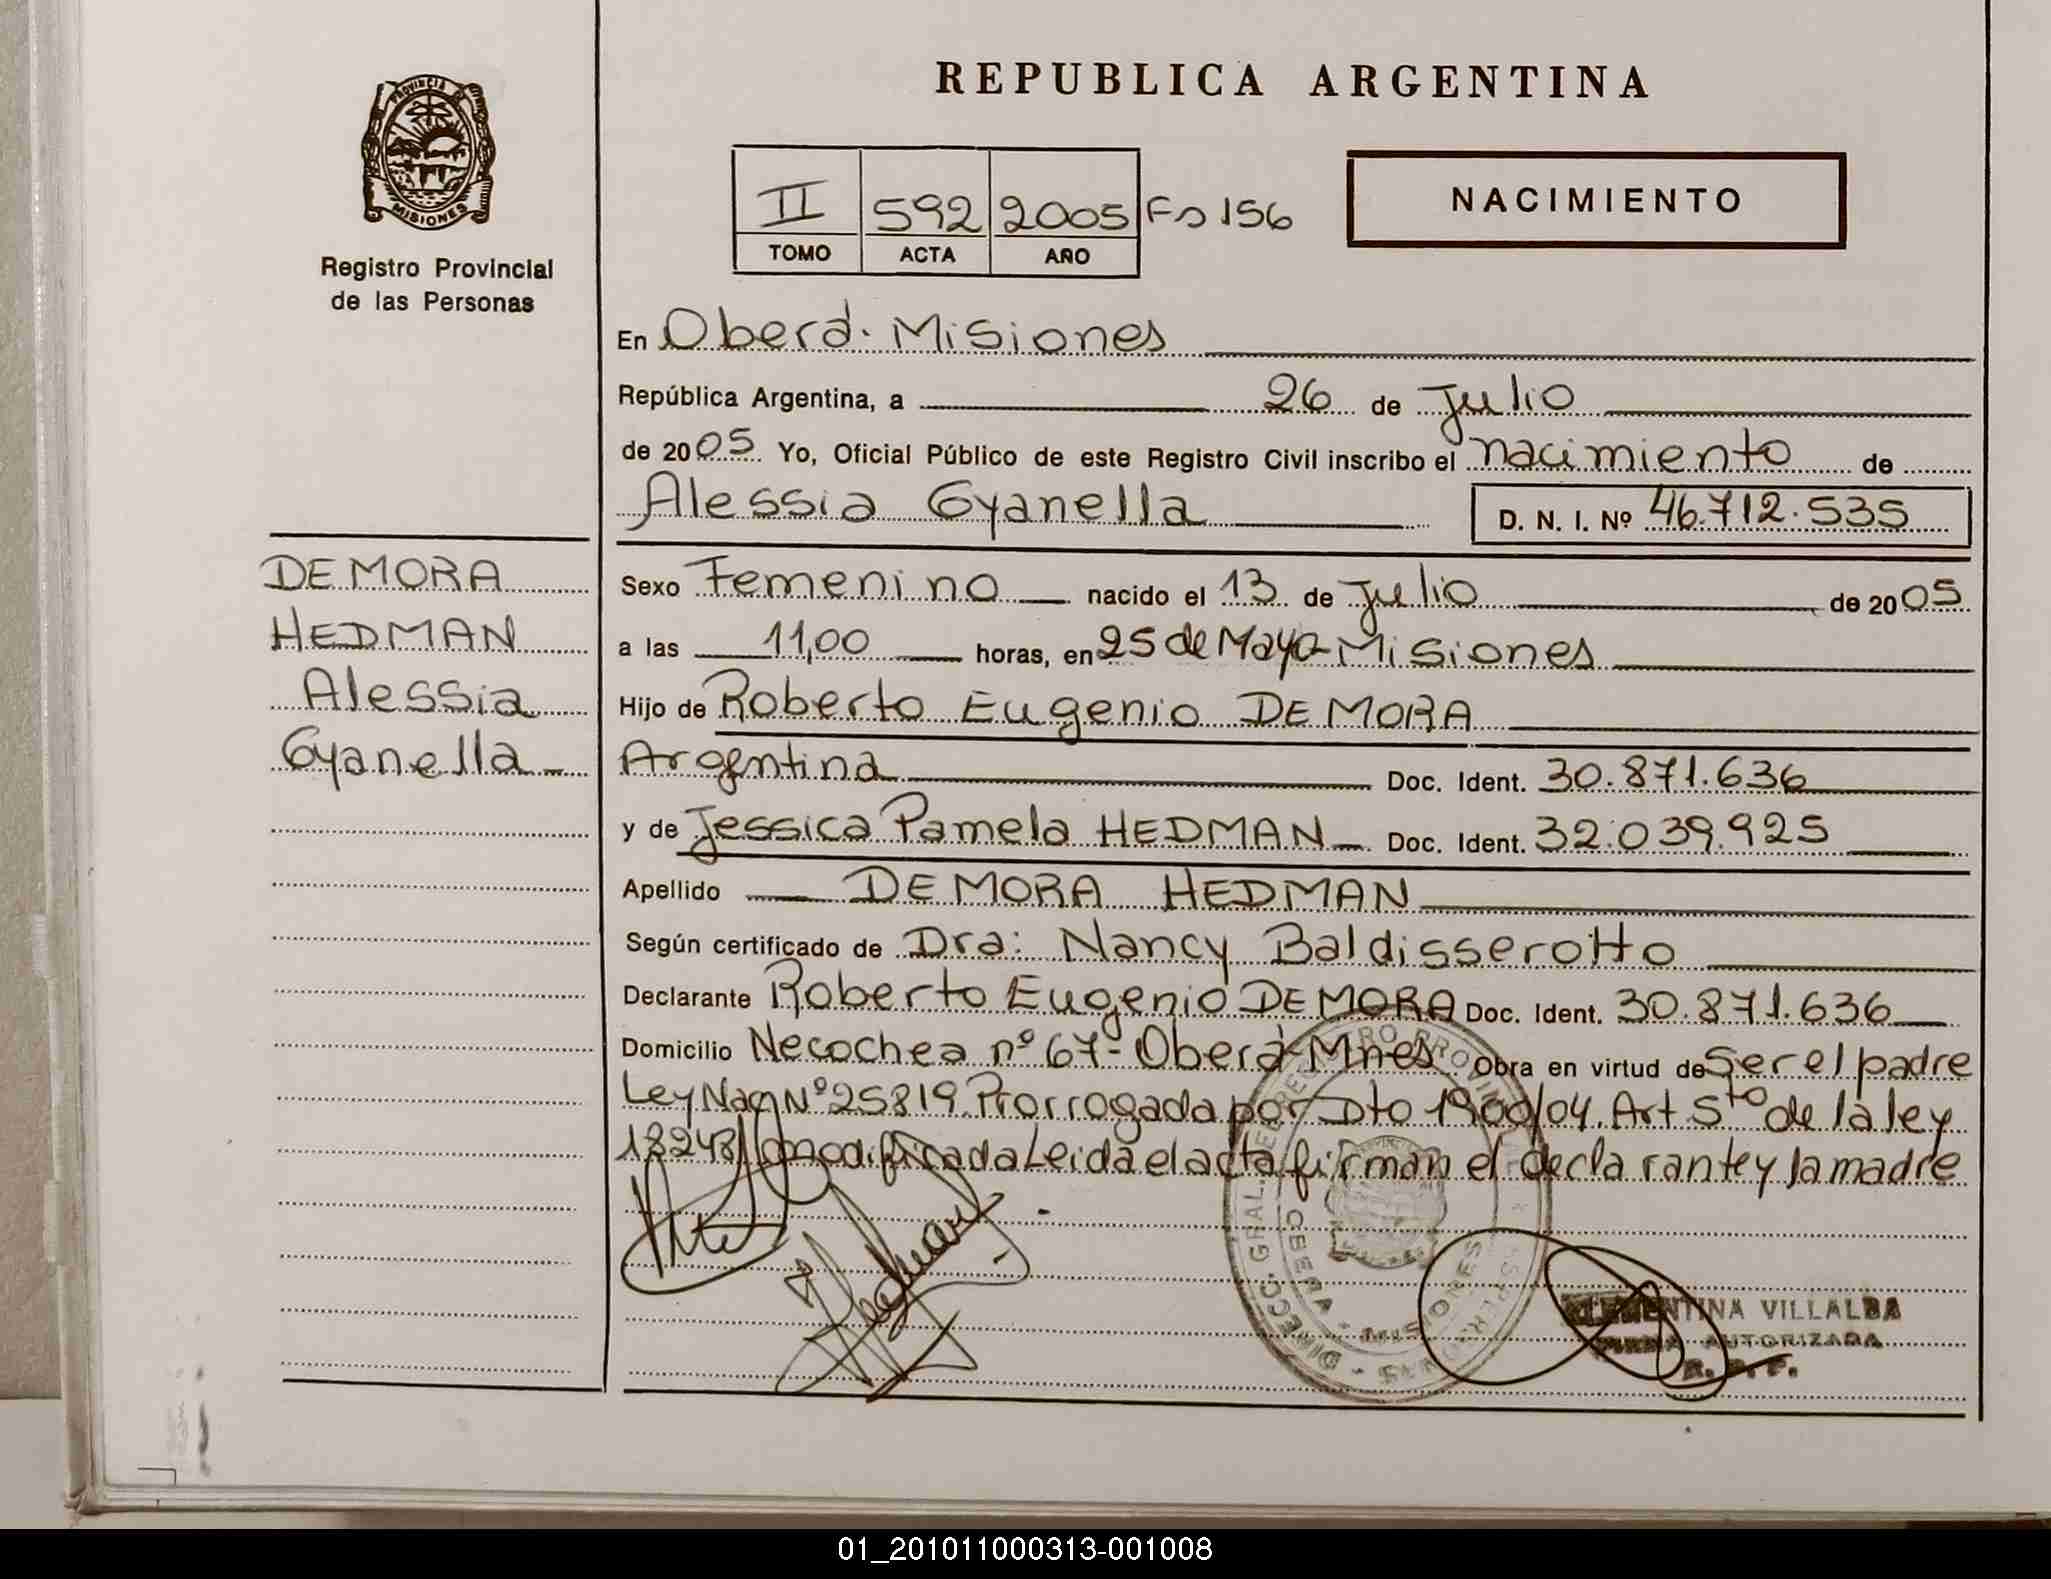 REPUBLICA ARGENTINA
PROVINCIA DE
MISIONES
Registro Provincial
de las Personas
II 592 2005 Fo 156
TOMO ACTA AÑO
NACIMIENTO
En Oberá. Misiones
República Argentina, a 26 de Julio
de 2005 Yo, Oficial Público de este Registro Civil inscribo el nacimiento de
Alessia Gyanella D. N. I. Nº 46.712.535
DE MORA
HEDMAN
Alessia
Gyanella
Sexo Femenino nacido el 13 de Julio de 2005
a las 11,00 horas, en 25 de Mayo-Misiones
Hijo de Roberto Eugenio DE MORA
Argentina Doc. Ident. 30.871.636
y de Jessica Pamela HEDMAN Doc. Ident. 32.039.925
Apellido DE MORA HEDMAN
Según certificado de Dra: Nancy Baldisserotto
Declarante Roberto Eugenio DE MORA Doc. Ident. 30.871.636
Domicilio Necochea nº 67-Oberá-Mnes Obra en virtud de Ser el padre
Ley Nac Nº 25819. Prorrogada por Dto 1900/04. Art 5to de la ley
18248 modificada Leida el acta firman el declarante y la madre
OBERA - MISIONES
CLEMENTINA VILLALBA
FIRMA AUTORIZADA
R. P. P.
01_201011000313-001008